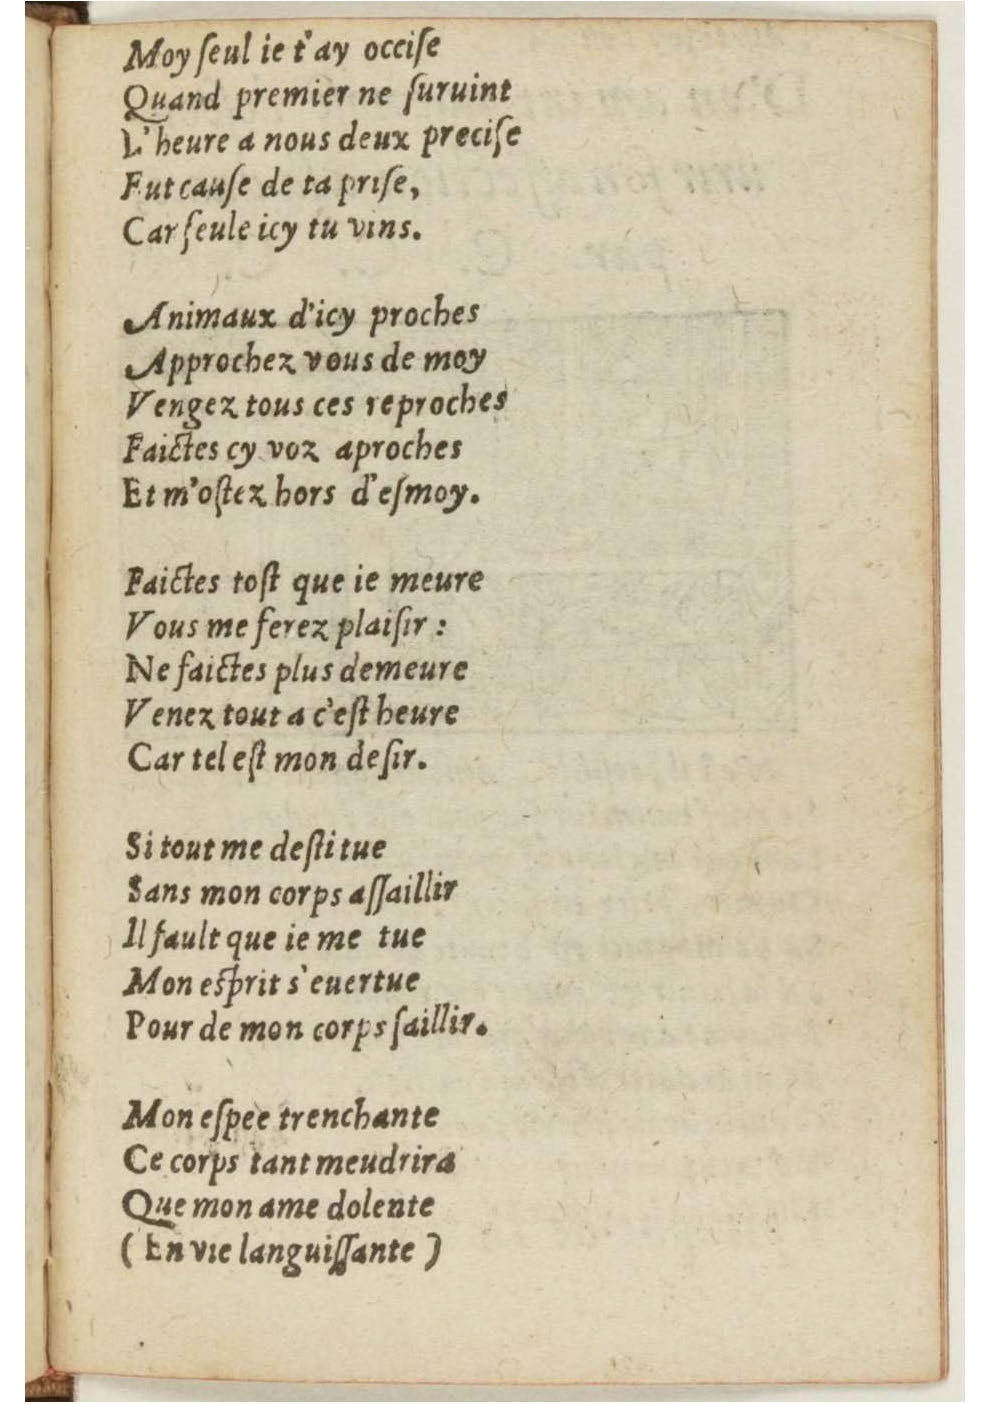 Moy ſeul ie t'ay occiſe
Quand premier ne ſuruint
L'heure a nous deux preciſe
Fut cauſe de ta priſe,
Car ſeule icy tu vins.

Animaux d'icy proches
Approchez vous de moy
Vengez tous ces reproches
Faictes cy voz aproches
Et m'oſtez hors d'eſmoy.

Faictes toſt que ie meure
Vous me ferez plaiſir :
Ne faictes plus demeure
Venez tout a c'eſt heure
Car tel eſt mon deſir.

Si tout me deſtitue
Sans mon corps aſſaillir
Il fault que ie me tue
Mon eſprit s'euertue
Pour de mon corps ſaillir.

Mon eſpee trenchante
Ce corps tant meudrira
Que mon ame dolente
( En vie languiſſante )